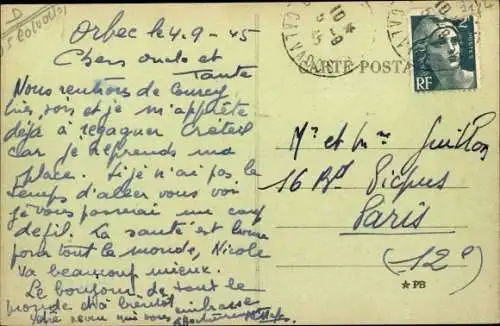 Orbec le 4.9-45
Chers oncle et
Tante
Nous rentrons de Courcy
hier soir et je m'apprête
déjà à regagner Créteil
car je reprends ma
place. Si je n'ai pas le
temps d'aller vous voir
je vous passerai un coup
défil. La santé est bonne
pour tout le monde, Nicole
va beaucoup mieux.
Le bonjour de tout le
monde d'ici bientôt
Votre neveu qui vous embrasse
CARTE POSTALE
RF
Mr et Mme Guillon
16 Bd Picpus
Paris
(12e)
*PB